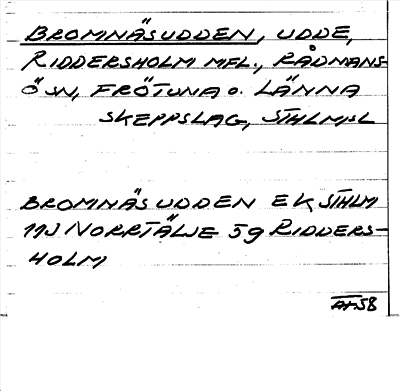 BROMNÄSUDDEN, UDDE,
RIDDERSHOLM MFL., RÅDMANS-
Ö SN, FRÖTUNA O. LÄNNA
SKEPPSLAG, STHLMSL
BROMNÄSUDDEN EK STHLM
11J NORRTÄLJE 5g RIDDERS-
HOLM